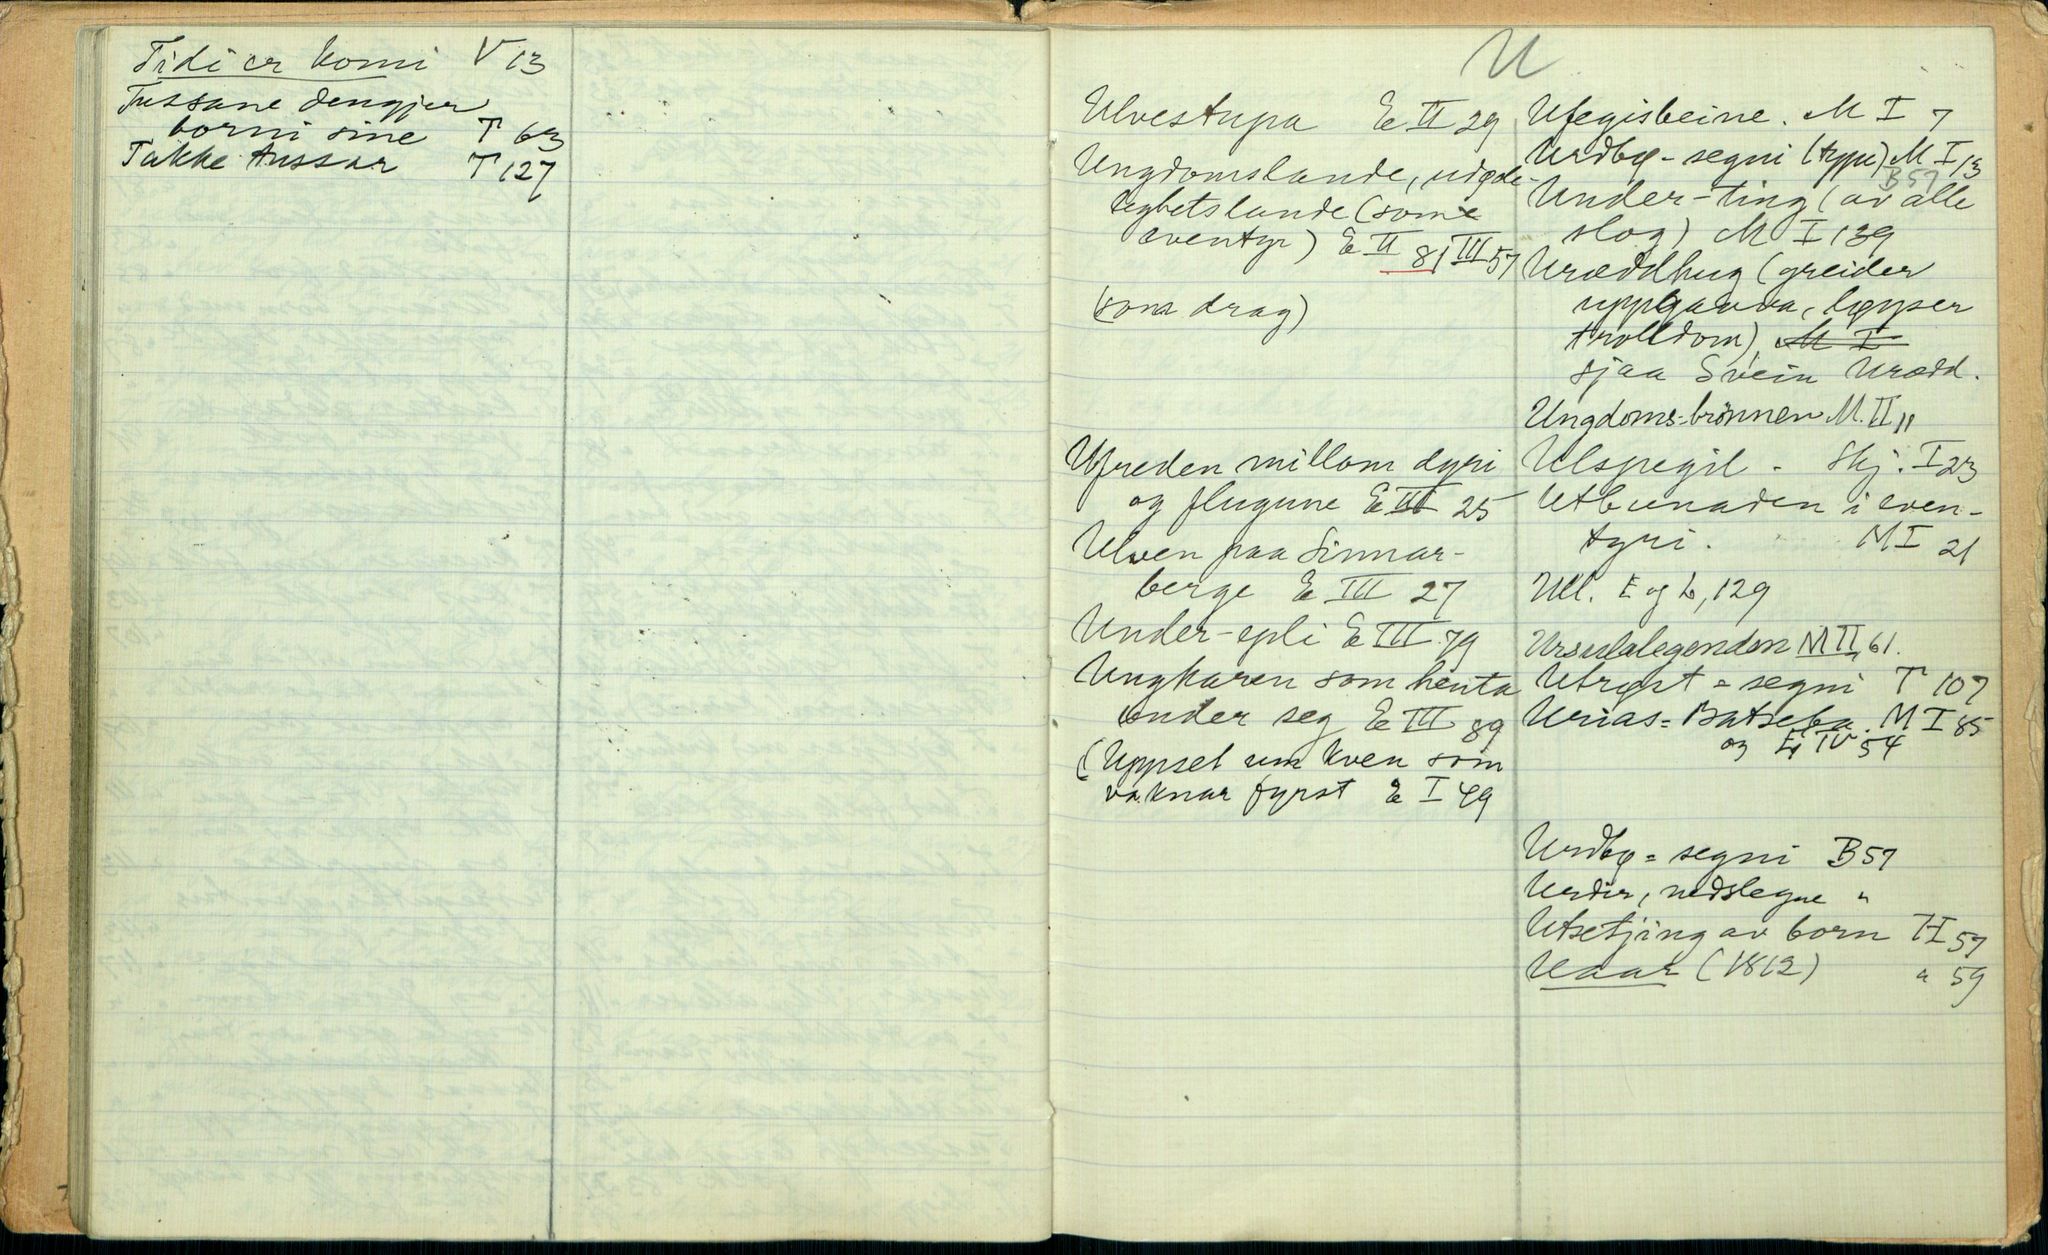 Tidi er komi V 13
Tussane dengjer
borni sine T 63
Takke tussar T 127
U
Ulvestupa E II 29
Ungdomslande, udøde-
leghetslande (som
eventyr) E II 81 III 57
(som drag)
Ufreden millom dyri
og flugune E III 25
Ulven paa Sinnar-
berge E III 27
Under-epli E III 79
Ungkaren som henta
under seg E III 89
(Uppset um kven som
vaknar fyrst E I 49
Ufegisbeine. M I 7
Urdbø-segni (type) M I 13
B 57
Under-ting (av alle
slag) M I 139
Uræddhug (greider
uppgaava, løyser
trolldom) M I
sjaa Svein Urædd.
Ungdoms-brønnen M. II 11
Ulspegil - Skj. I 23
Utbunaden i even-
tyri. M I 21
Ull. E og L, 129
Ursulalegenden M II 61.
Utrøst = segni T 107
Urias = Batseba. M I 85
og E IV 54
Urdbø = segni B 57
Urdir, nedslegne "
Utsetjing av born T I 57
Uaar (1812) " 59